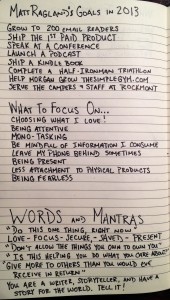 MATT RAGLAND'S GOALS IN 2013
GROW TO 200 EMAIL READERS
SHIP THE 1ST PAID PRODUCT
SPEAK AT A CONFERENCE
LAUNCH A PODCAST
SHIP A KINDLE BOOK
COMPLETE A HALF-IRONMAN TRIATHLON
HELP MORGAN GROW THESIMPLEGYM.COM
SERVE THE CAMPERS & STAFF AT ROCKMONT
WHAT TO FOCUS ON...
CHOOSING WHAT I LOVE!
BEING ATTENTIVE
MONO-TASKING
BE MINDFUL OF INFORMATION I CONSUME
LEAVE MY PHONE BEHIND SOMETIMES
BEING PRESENT
LESS ATTACHMENT TO PHYSICAL PRODUCTS
BEING FEARLESS
WORDS AND MANTRAS
"DO THIS ONE THING, RIGHT NOW"
LOVE - FOCUS - SECURE - SAVED - PRESENT
"DON'T ALLOW THE THINGS YOU OWN TO OWN YOU"
"IS THIS HELPING YOU DO WHAT YOU CARE ABOUT?"
"GIVE MORE TO OTHERS THAN YOU WOULD EVER
RECEIVE IN RETURN"
YOU ARE A WRITER, STORYTELLER, AND HAVE A
STORY FOR THE WORLD. TELL IT!